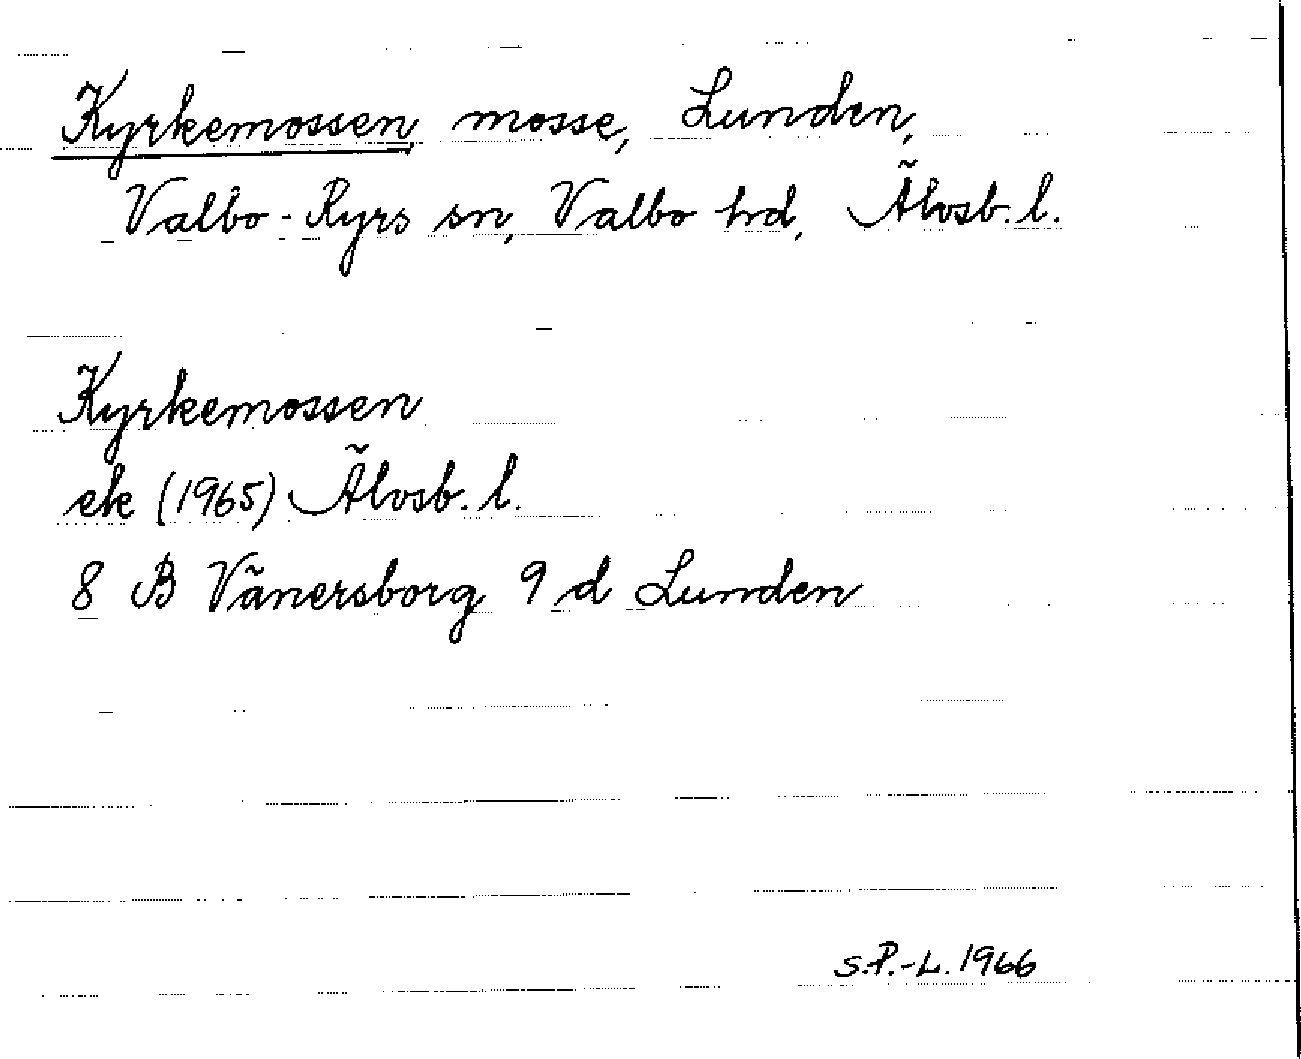 Kyrkemossen mosse, Lunden,
Valbo-Ryrs sn, Valbo hd, Älvsb. l.
Kyrkemossen
ek (1965) Älvsb. l.
8 B Vänersborg 9 d Lunden
S.P.-L. 1966